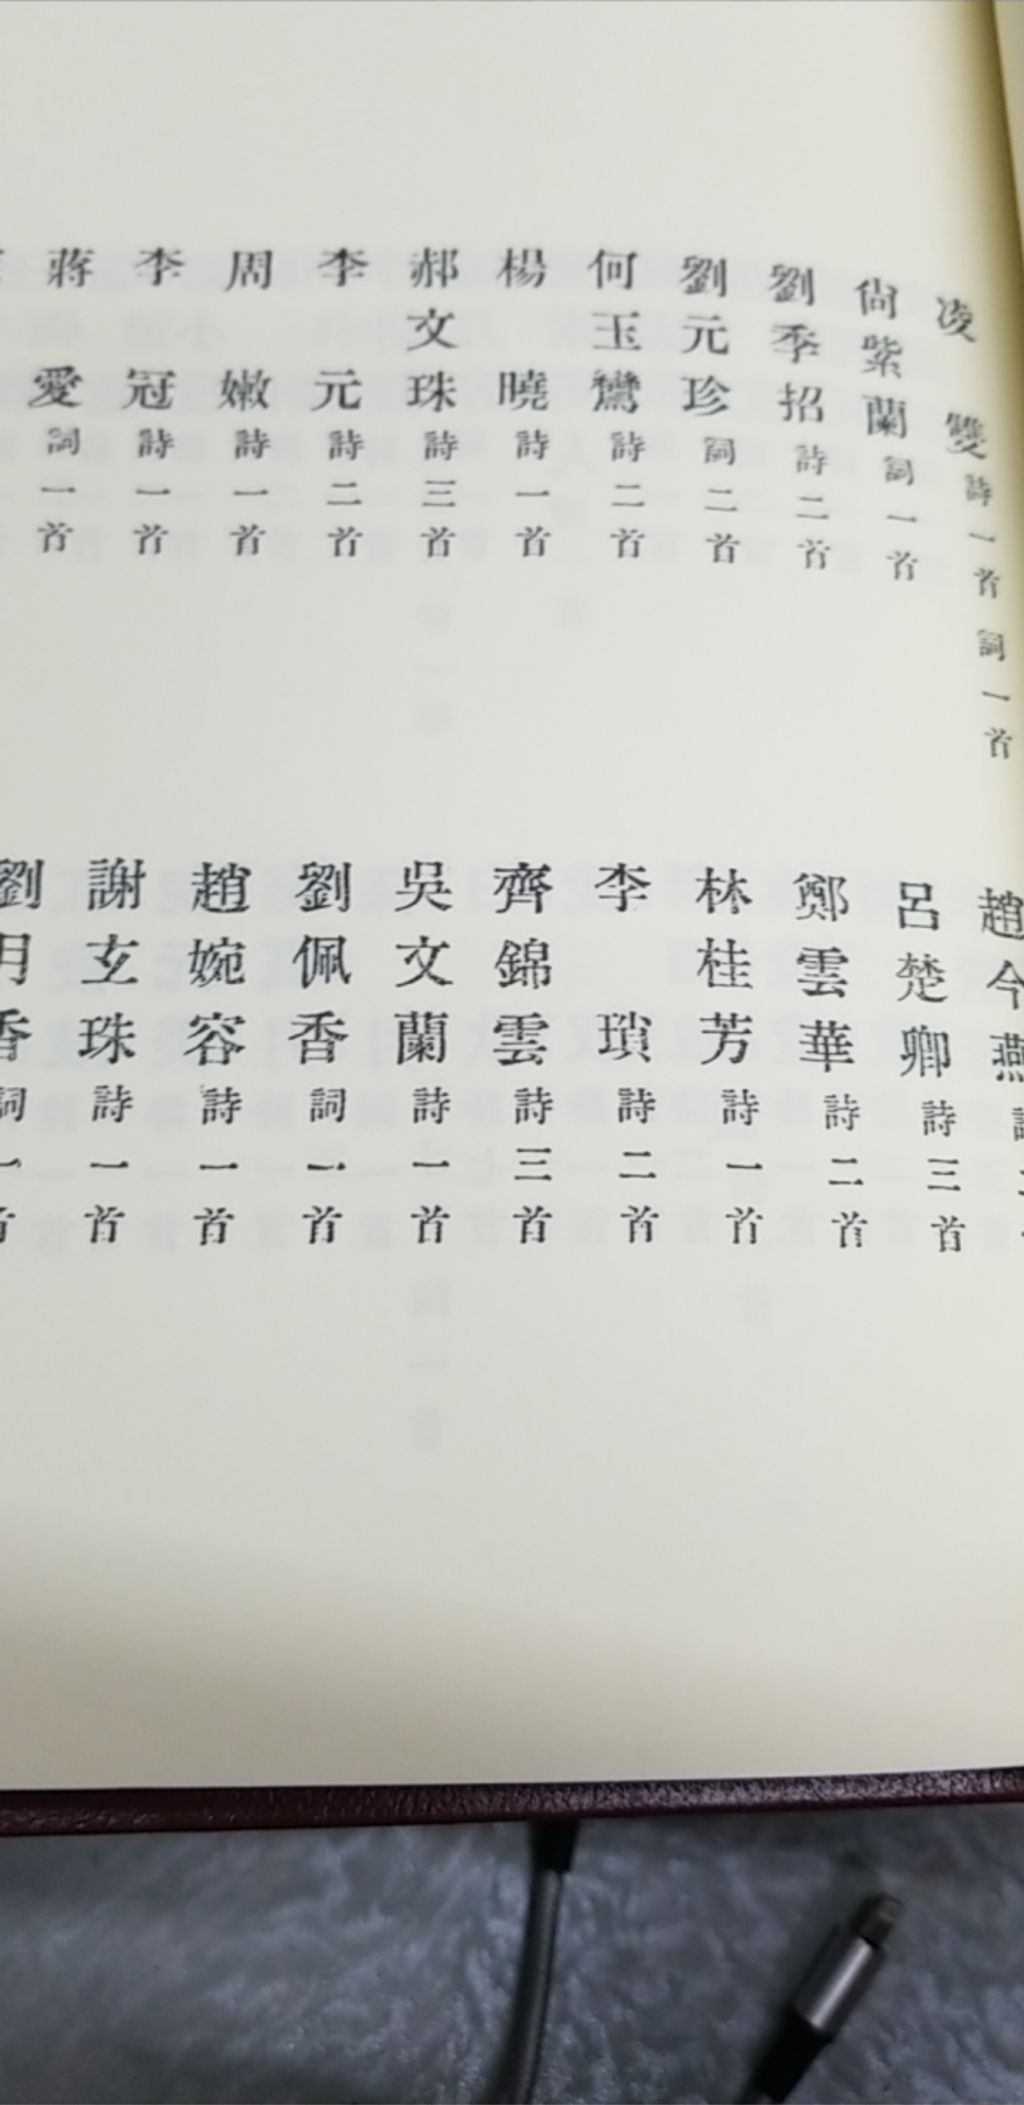 凌　雙詩一首詞一首
尙紫蘭詞一首
劉季招詩二首
劉元珍詞二首
何玉鸞詩二首
楊　曉詩一首
郝文珠詩三首
李　元詩二首
周　嫩詩一首
李　冠詩一首
蔣　愛詞一首
趙今燕
呂楚卿詩三首
鄭雲華詩二首
林桂芳詩一首
李　瑣詩二首
齊錦雲詩三首
吳文蘭詩一首
劉佩香詞一首
趙婉容詩一首
謝玄珠詩一首
劉月香詞一首